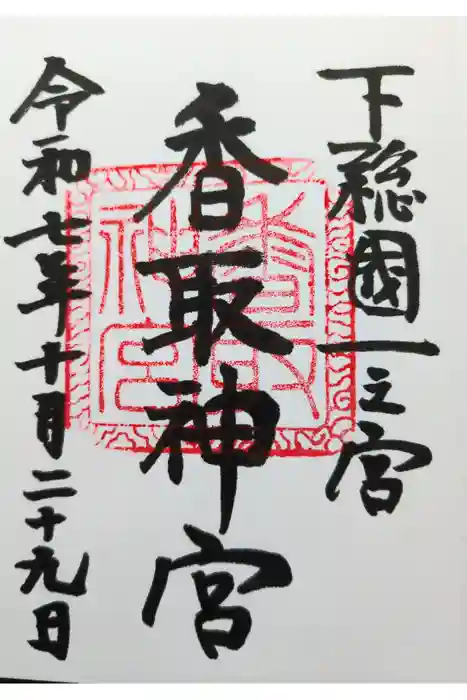 下総國一之宮
香取神宮
令和七年十月二十九日
香取
神宮